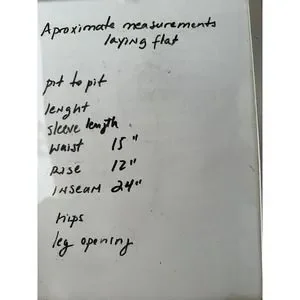 Aproximate measurements
laying flat
pit to pit
lenght
sleeve length
waist 15"
Rise 12"
Inseam 24"
hips
leg opening